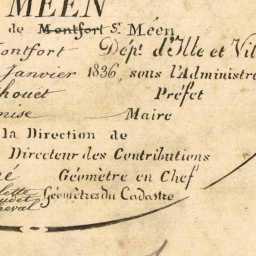 MÉEN
de Montfort St Méen,
ontfort Dépt d'Ille et Vil
Janvier 1836, sous l'Administra
houet Préfet
mise Maire
la Direction de
Directeur des Contributions
ré Géomètre en Chef
Géomètres du Cadastre